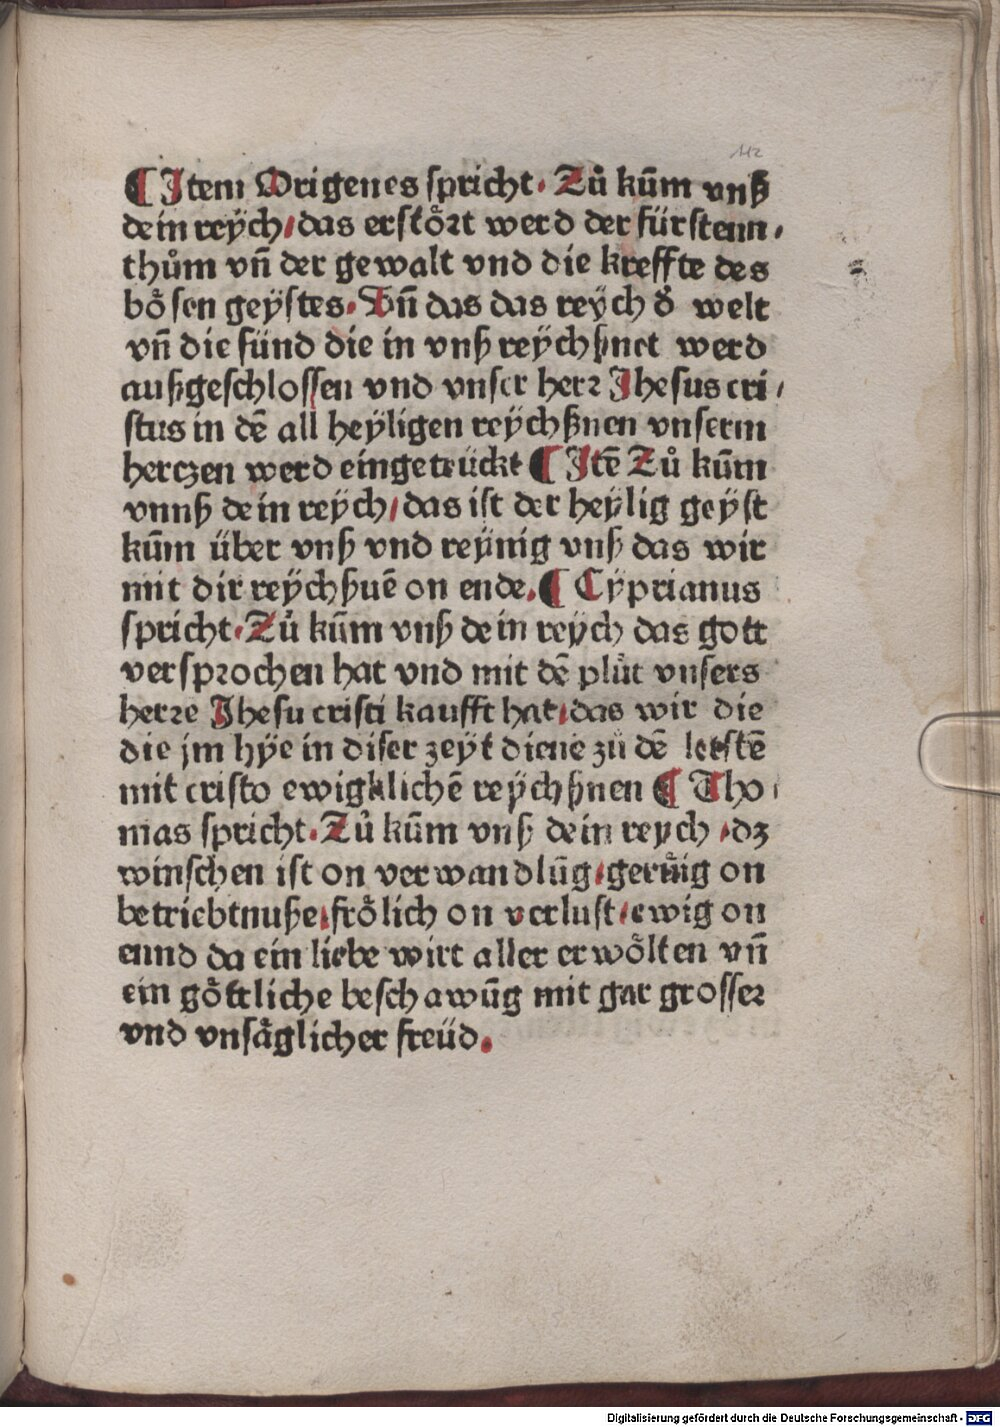 112
¶ Item Origenes spricht. Zů kūm vnß
dein reÿch/das erstȯ̈rt werd der fürstenn/
thům vn̄ der gewalt vnd die kreffte des
bȯ̈sen geÿstes. Vn̄ das das reÿch d̕ welt
vn̄ die sünd die in vnß reÿchßnet werd
außgeschlossen vnd vnser herr Jhesus cri/
stus in dē all heÿligen reÿchßnen vnserm
herczen werd eingetrückt ¶ Itē Zů kūm
vnnß dein reÿch/das ist der heÿlig geÿst
kūm über vnß vnd reÿnig vnß das wir
mit dir reÿchßnē on ende. ¶ Cÿprianus
spricht. Zů kūm vnß dein reÿch das gott
versprochen hat vnd mit dē plůt vnsers
herre Jhesu cristi kaufft hat/das wir die
die jm hÿe in diser zeÿt dienē zů dē letstē
mit cristo ewigklichē reÿchßnen ¶ Tho/
mas spricht. Zů kūm vnß dein reÿch/dz
winschen ist on verwandlūg/gerůig on
betriebtnuße/frölich on verlust/ewig on
ennd da ein liebe wirt aller erwölten vn̄
ein göttliche beschawūg mit gar grosser
vnd vnsäglicher freüd.
Digitalisierung gefördert durch die Deutsche Forschungsgemeinschaft - DFG